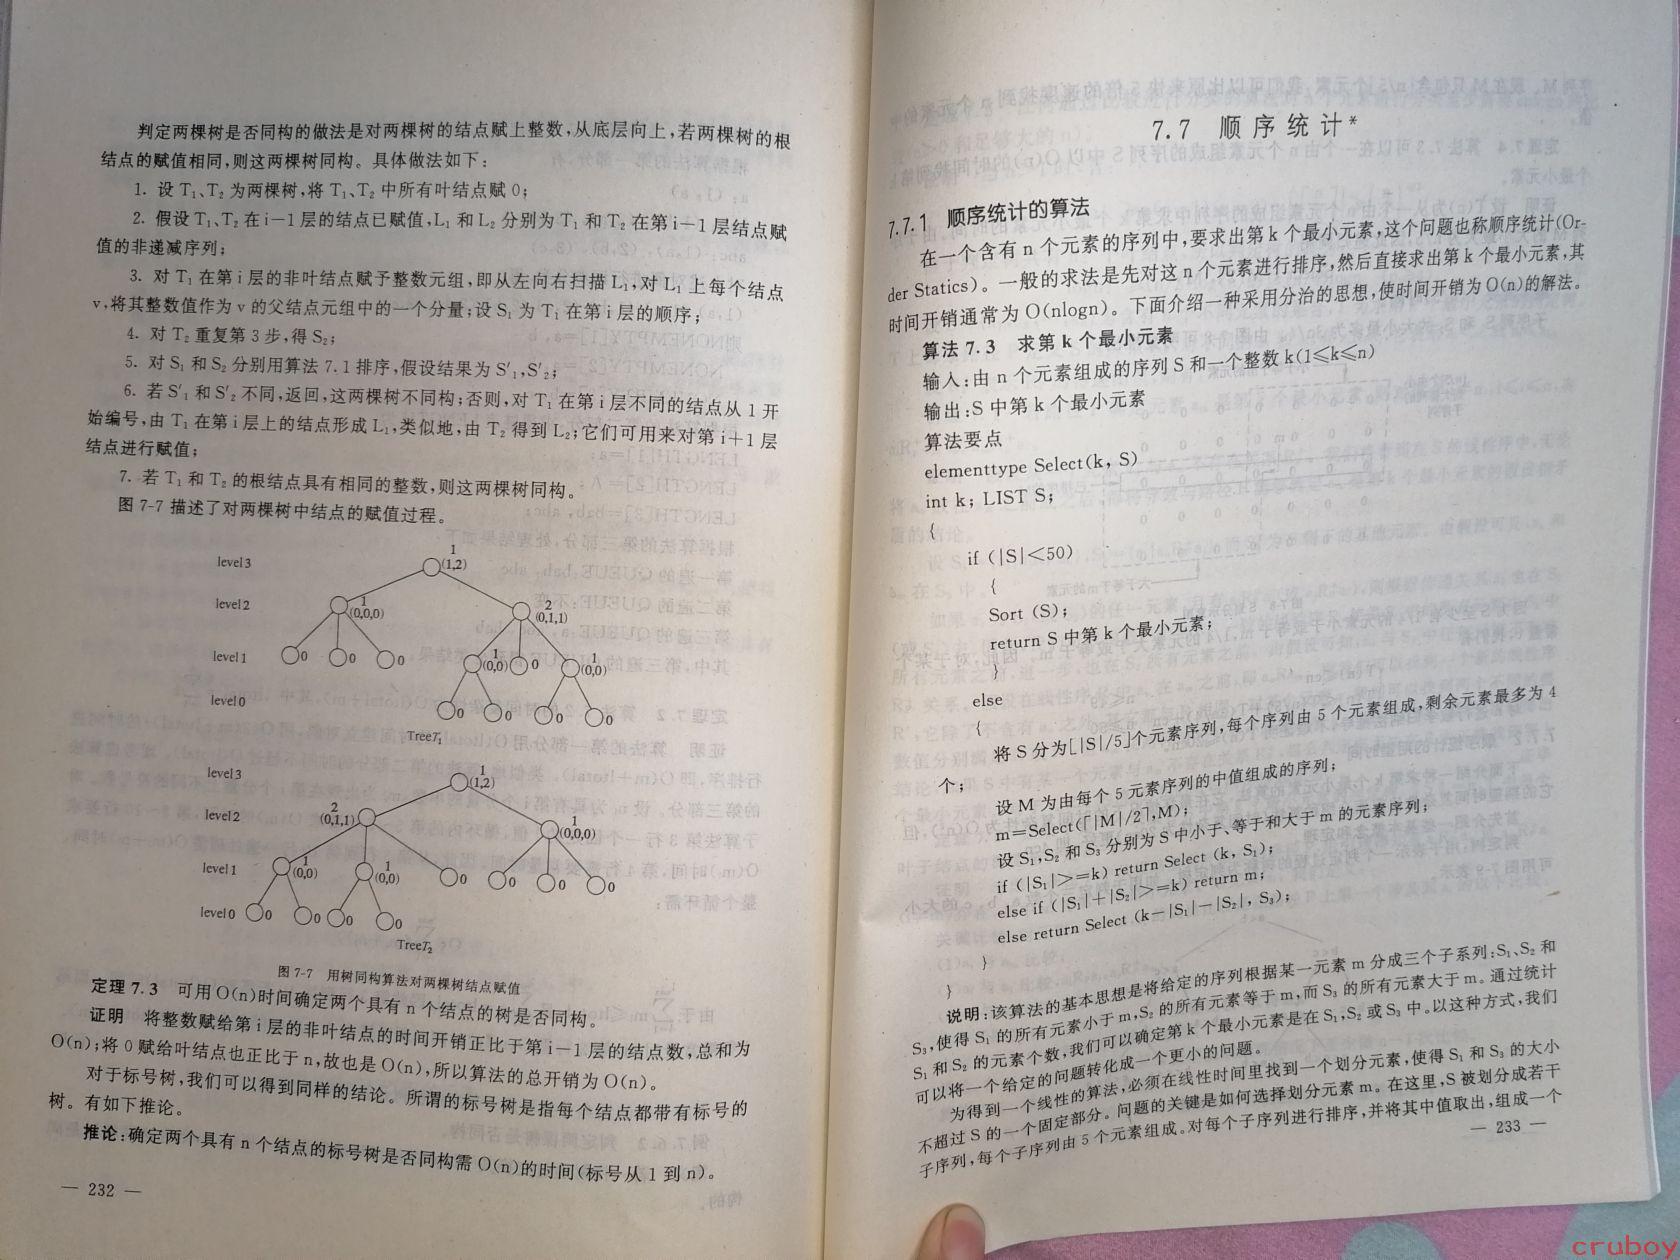 判定两棵树是否同构的做法是对两棵树的结点赋上整数,从底层向上,若两棵树的根
结点的赋值相同,则这两棵树同构。具体做法如下:
1. 设 T₁、T₂ 为两棵树,将 T₁、T₂ 中所有叶结点赋 0;
2. 假设 T₁、T₂ 在 i－1 层的结点已赋值,L₁ 和 L₂ 分别为 T₁ 和 T₂ 在第 i－1 层结点赋
值的非递减序列;
3. 对 T₁ 在第 i 层的非叶结点赋予整数元组,即从左向右扫描 L₁,对 L₁ 上每个结点
v,将其整数值作为 v 的父结点元组中的一个分量;设 S₁ 为 T₁ 在第 i 层的顺序;
4. 对 T₂ 重复第 3 步,得 S₂;
5. 对 S₁ 和 S₂ 分别用算法 7.1 排序,假设结果为 S′₁,S′₂;
6. 若 S′₁ 和 S′₂ 不同,返回,这两棵树不同构;否则,对 T₁ 在第 i 层不同的结点从 1 开
始编号,由 T₁ 在第 i 层上的结点形成 L₁,类似地,由 T₂ 得到 L₂;它们可用来对第 i＋1 层
结点进行赋值;
7. 若 T₁ 和 T₂ 的根结点具有相同的整数,则这两棵树同构。
图 7-7 描述了对两棵树中结点的赋值过程。
level3 1 (1,2)
level2 1 (0,0,0) 2 (0,1,1)
level1 0 0 0 1 (0,0) 0 1 (0,0)
level0 0 0 0 0
TreeT₁
level3 1 (1,2)
level2 2 (0,1,1) 1 (0,0,0)
level1 1 (0,0) 1 (0,0) 0 0 0 0
level0 0 0 0 0
TreeT₂
图 7-7 用树同构算法对两棵树结点赋值
定理 7.3 可用 O(n)时间确定两个具有 n 个结点的树是否同构。
证明 将整数赋给第 i 层的非叶结点的时间开销正比于第 i－1 层的结点数,总和为
O(n);将 0 赋给叶结点也正比于 n,故也是 O(n),所以算法的总开销为 O(n)。
对于标号树,我们可以得到同样的结论。所谓的标号树是指每个结点都带有标号的
树。有如下推论。
推论:确定两个具有 n 个结点的标号树是否同构需 O(n)的时间(标号从 1 到 n)。
— 232 —
7.7 顺序统计*
7.7.1 顺序统计的算法
在一个含有 n 个元素的序列中,要求出第 k 个最小元素,这个问题也称顺序统计(Or-
der Statics)。一般的求法是先对这 n 个元素进行排序,然后直接求出第 k 个最小元素,其
时间开销通常为 O(nlogn)。下面介绍一种采用分治的思想,使时间开销为 O(n)的解法。
算法 7.3 求第 k 个最小元素
输入:由 n 个元素组成的序列 S 和一个整数 k(1≤k≤n)
输出:S 中第 k 个最小元素
算法要点
elementtype Select(k, S)
int k; LIST S;
{
if (|S|<50)
{
Sort (S);
return S 中第 k 个最小元素;
}
else
{
将 S 分为⌊|S|/5⌋个元素序列,每个序列由 5 个元素组成,剩余元素最多为 4
个;
设 M 为由每个 5 元素序列的中值组成的序列;
m=Select(⌈|M|/2⌉,M);
设 S₁,S₂ 和 S₃ 分别为 S 中小于、等于和大于 m 的元素序列;
if (|S₁|>=k) return Select (k, S₁);
else if (|S₁|+|S₂|>=k) return m;
else return Select (k－|S₁|－|S₂|, S₃);
}
}
说明:该算法的基本思想是将给定的序列根据某一元素 m 分成三个子系列:S₁、S₂ 和
S₃,使得 S₁ 的所有元素小于 m,S₂ 的所有元素等于 m,而 S₃ 的所有元素大于 m。通过统计
S₁ 和 S₂ 的元素个数,我们可以确定第 k 个最小元素是在 S₁,S₂ 或 S₃ 中。以这种方式,我们
可以将一个给定的问题转化成一个更小的问题。
为得到一个线性的算法,必须在线性时间里找到一个划分元素,使得 S₁ 和 S₃ 的大小
不超过 S 的一个固定部分。问题的关键是如何选择划分元素 m。在这里,S 被划分成若干
子序列,每个子序列由 5 个元素组成。对每个子序列进行排序,并将其中值取出,组成一个
— 233 —
cruboy